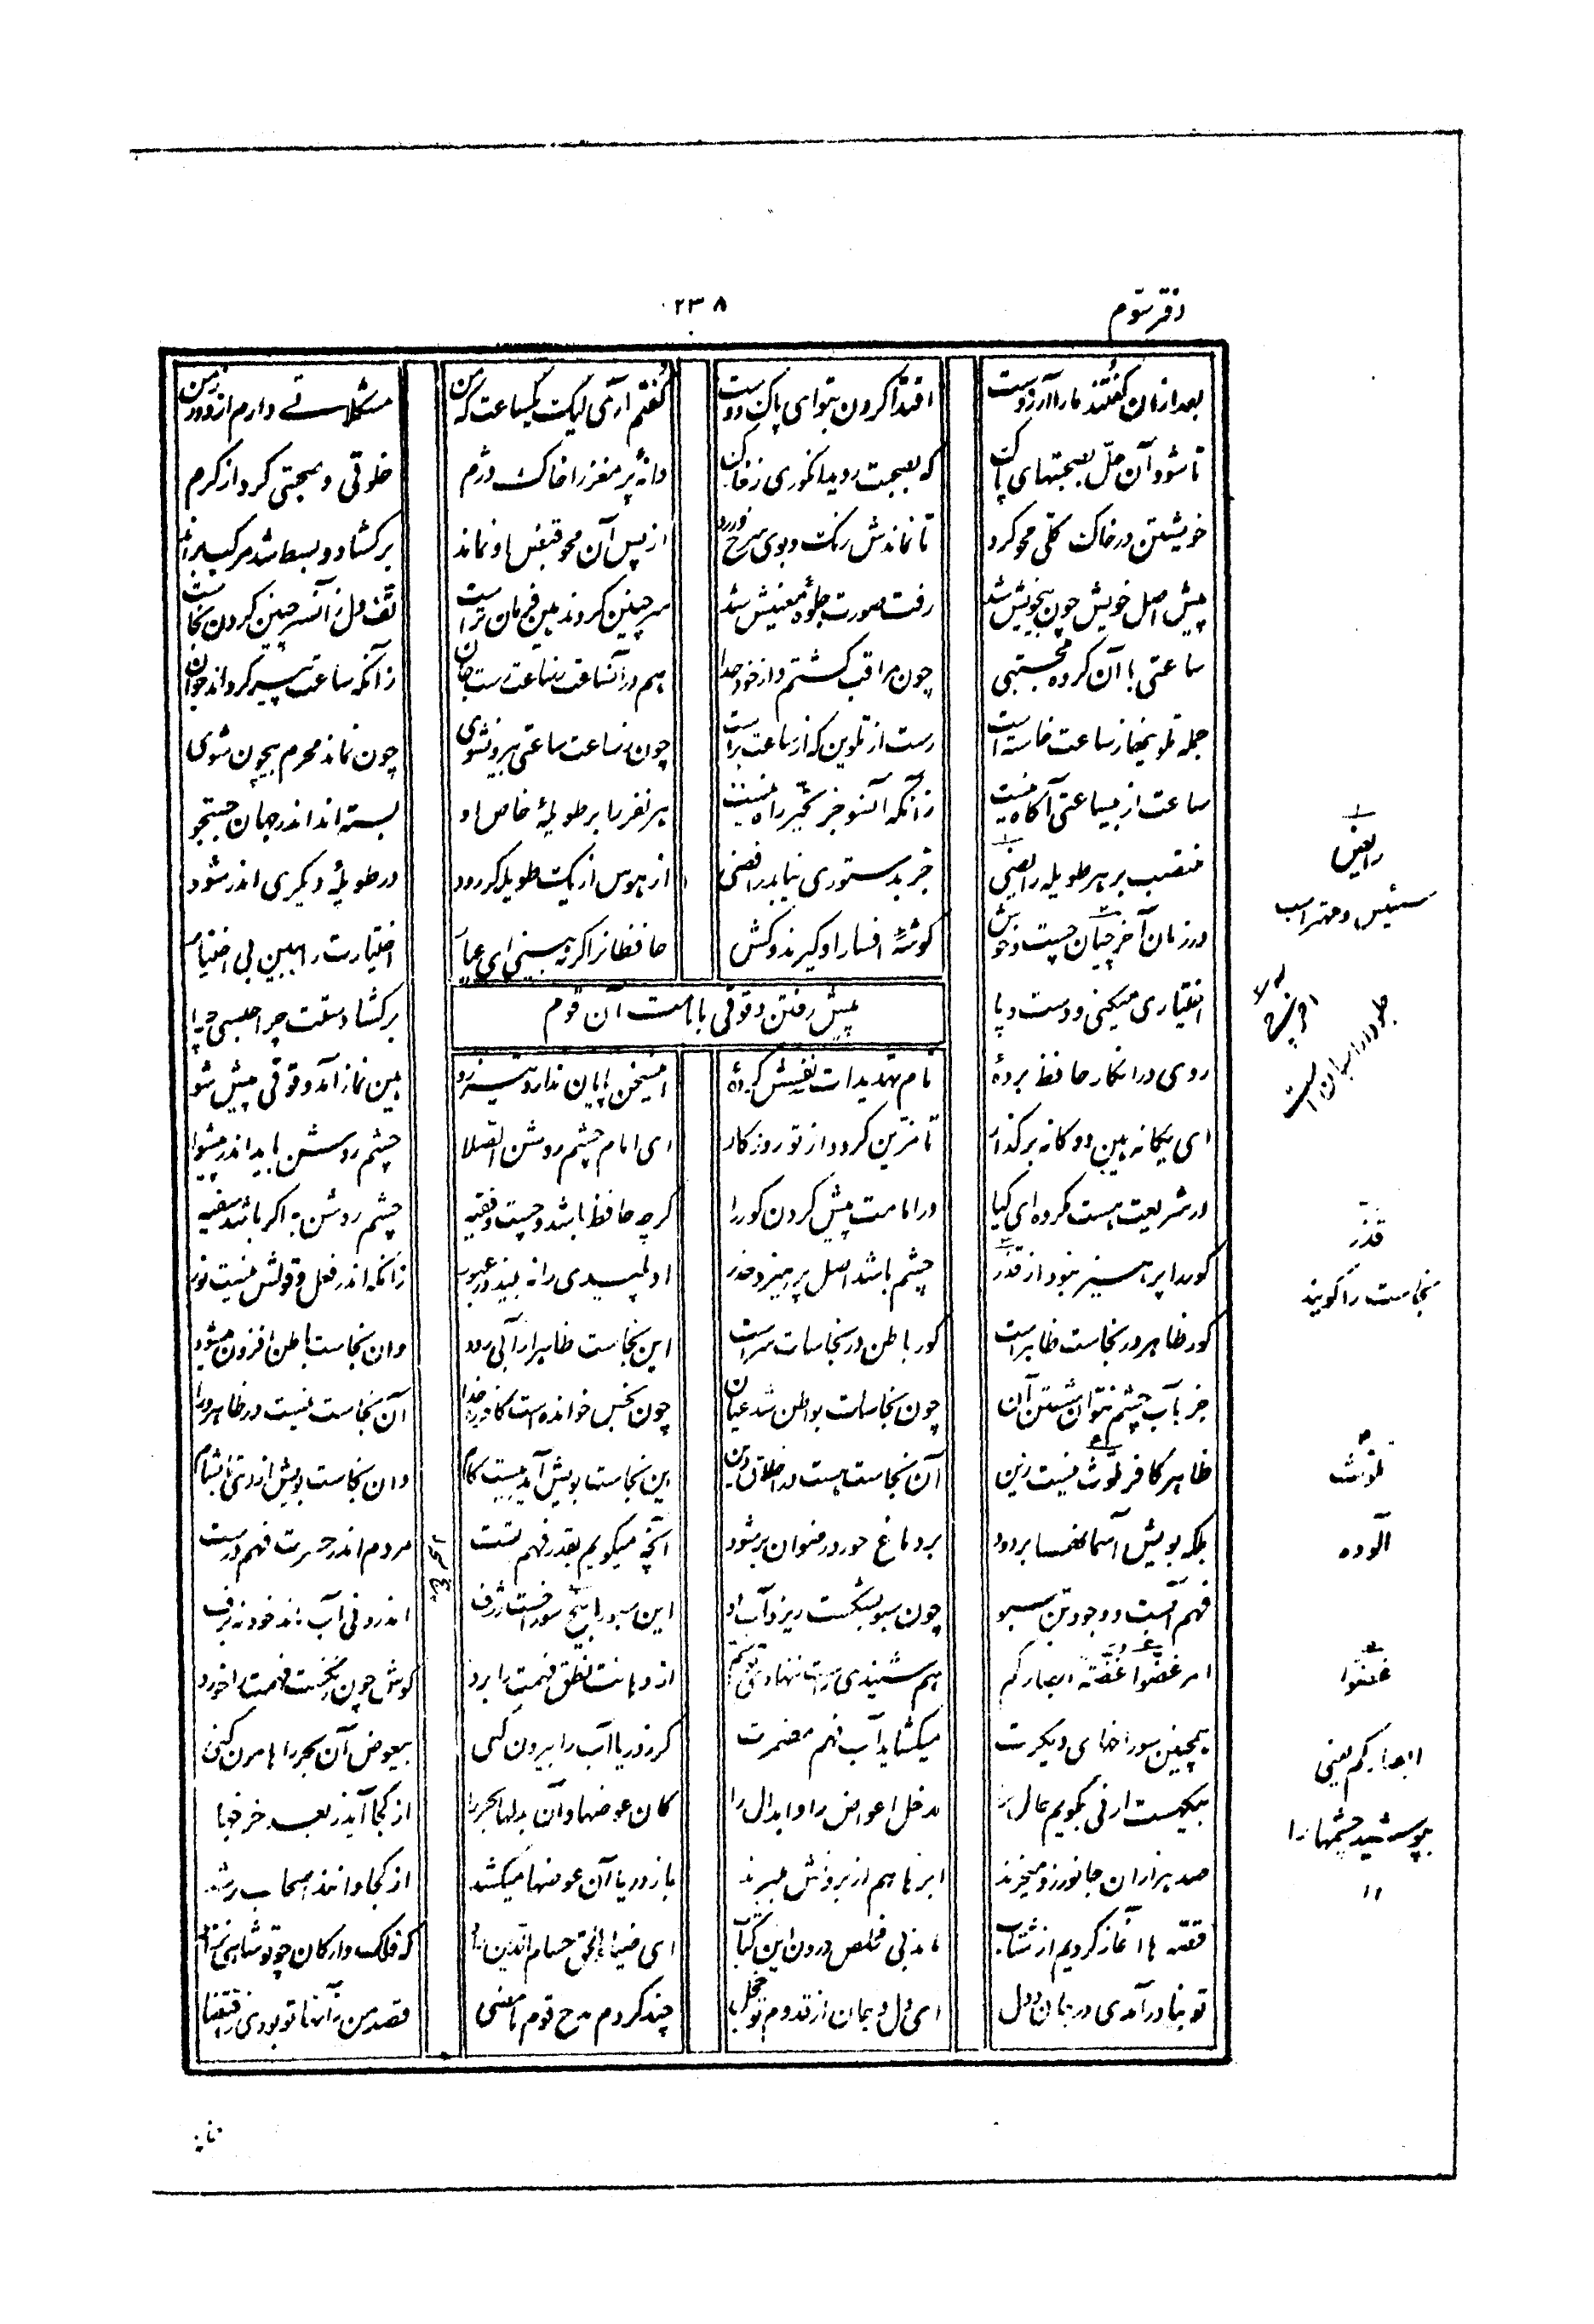 دفتر سوّم
۲۳۸
بعد ازان گفتند ما را آرزوست
اقتدا کردن بتو ای پاک دوست
گفتم آری لیک یکساعت که من
مشکلاتی دارم از دور زمن
تا شود آن حلّ بصحبتهای پاک
که بصحبت روید انگوری ز خاک
دانهٔ پر مغز را خاک دژم
خلوتی و صحبتی کرد از کرم
خویشتن در خاک کلی محو کرد
تا نماندش رنگ و بوی سرخ و زرد
از پس آن محو قبض او نماند
برگشاد و بسط شد مرکب براند
پیش اصل خویش چون بیخویش شد
رفت صورت جلوهٔ معنیش شد
سر چنین کردند هین فرمان تراست
تف دل از آنسر چنین کردن بخاست
ساعتی با آن گروه مجتبی
چون مراقب گشتم و از خود جدا
هم در آنساعت ز ساعت رست جان
زانکه ساعت پیر گرداند جوان
جمله تلوینها ز ساعت خاسته است
رست از تلوین که از ساعت برست
چون ز ساعت ساعتی بیرون شوی
چون نماند محرم بیچون شوی
ساعت از بیساعتی آگاه نیست
زانکه آنسو جز تحیّر راه نیست
هر نفر را بر طویلهٔ خاص او
بسته اند اندر جهان جستجو
منتصب بر هر طویله رایضی
جز بدستوری نیاید رافضی
از هوس از یک طویله گر رود
در طویلهٔ دیگری اندر شود
در زمان آخرچیان چست و خوش
گوشهٔ افسار او گیرند و کش
حافظانرا گر نه بینی ای عیار
اختیارت را ببین بی اختیار
اختیاری میکنی و دست و پا
برگشادستت چرا حبسی چرا
پیش رفتن دقوقی بامامت آن قوم
روی در انکار حافظ بردهٔ
نام تهدیدات نفسش کردهٔ
اینسخن پایان ندارد تیز رو
هین نماز آمد دقوقی پیش شو
ای یگانه هین دوگانه برگذار
تا مزین گردد از تو روزگار
ای امام چشم روشن الصلا
چشم روشن باید اندر پیشوا
در شریعت هست مکروه ای کیا
در امامت پیش کردن کور را
گرچه حافظ باشد و چست و فقیه
چشم روشن به اگر باشد سفیه
کور را پرهیز نبود از قذر
چشم باشد اصل پرهیز و حذر
او پلیدی را نه بیند در عبور
زانکه اندر فعل و قولش نیست نور
کور ظاهر در نجاست ظاهر است
کور باطن در نجاسات سر است
این نجاست ظاهر از آبی رود
وان نجاست باطن افزون میشود
جز بآب چشم نتوان شستن آن
چون نجاسات بواطن شد عیان
چون نجس خوانده است کافر را خدا
آن نجاست نیست در ظاهر ورا
ظاهر کافر ملوث نیست زین
آن نجاست هست در اخلاق و دین
این نجاست بویش آید بیست گام
وان نجاست بویش از ری تا بشام
بلکه بویش آسمانها بر رود
بر دماغ حور و رضوان بر شود
آنچه میگویم بقدر فهم تست
مردم اندر حسرت فهم درست
فهم آبست و وجود تن سبو
چون سبو بشکست ریزد آب او
این سبو را پنج سوراخست ژرف
اندرو نی آب ماند خود نه برف
امر غضّوا غضّة ابصارکم
هم شنیدی راست ننهادی تو سم
از دهانت نطق فهمت را برد
گوش چون ریگست فهمت را خورد
همچنین سوراخهای دیگرت
میکشاید آب فهم مضمرت
گر ز دریا آب را بیرون کنی
بیعوض آن بحر را هامون کنی
بیگهست ار نی بگویم حال را
مدخل اعواض را و ابدال را
کان عوضها و آن بدلها بحر را
از کجا آید ز بعد خرجها
صد هزاران جانور زو میخورند
ابرها هم از برونش میبرند
باز دریا آن عوضها میکشد
از کجا دانند اصحاب رشد
قصّه ها آغاز کردیم از شتاب
ماند بی مخلص درون این کتاب
ای ضیاء الحق حسام الدین راد
که فلک و ارکان چو تو شاهی نزاد
تو بنادر آمدی در جان و دل
ای دل و جان از قدوم تو خجل
چند کردم مدح قوم ما مضی
قصد من ز آنها تو بودی ز اقتضا
رایض
سئیس و مهتر اسب
قذر
نجاست را گویند
ملوث
آلوده
غضوا
ابصارکم یعنی
بپوشید چشمها را
۱۱